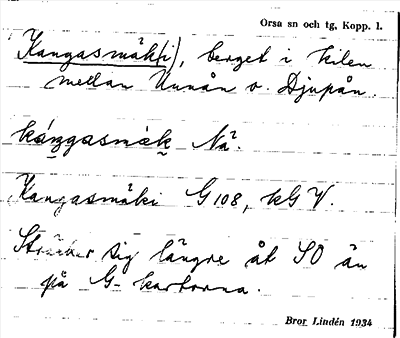 Orsa sn och tg, Kopp. l.
Kangasmäk(i), berget i kilen
mellan Unnån o. Djupån.
káŋgasmäk Nä.
Kangasmäki G 108, kG V.
Sträcker sig längre åt SO än
på G-kartorna.
Bror Lindén 1934